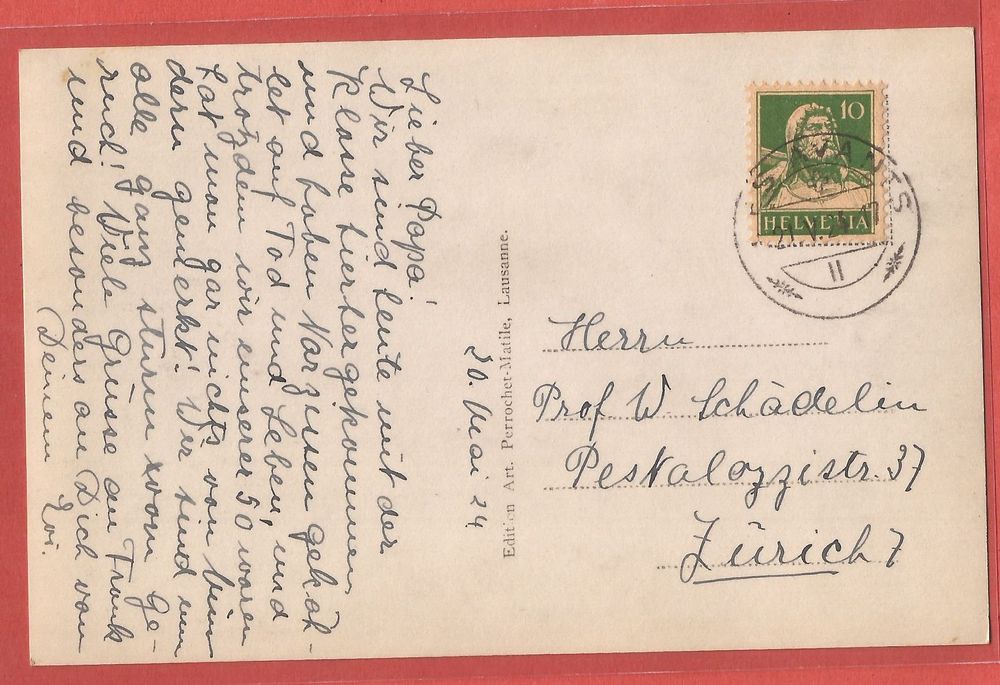 Lieber Papa!
Wir sind heute mit der
Klasse hierher gekommen
und haben Narzissen geköt-
let auf Tod und Leben, und
trotzdem wir unserer 50 waren
hat man gar nichts von
dern gemerkt! Wir sind nun
alle ganz sturm vom Ge-
ruch! Viele Grüsse an Frank
und besonders an Dich von
Deinem
20. Mai 24
Edition Art. Perrochet-Matile, Lausanne.
10
HELVETIA
AVANTS
21.V.2
II
Herrn
Prof W. Schädelin
Pestalozzistr. 37
Zürich 7